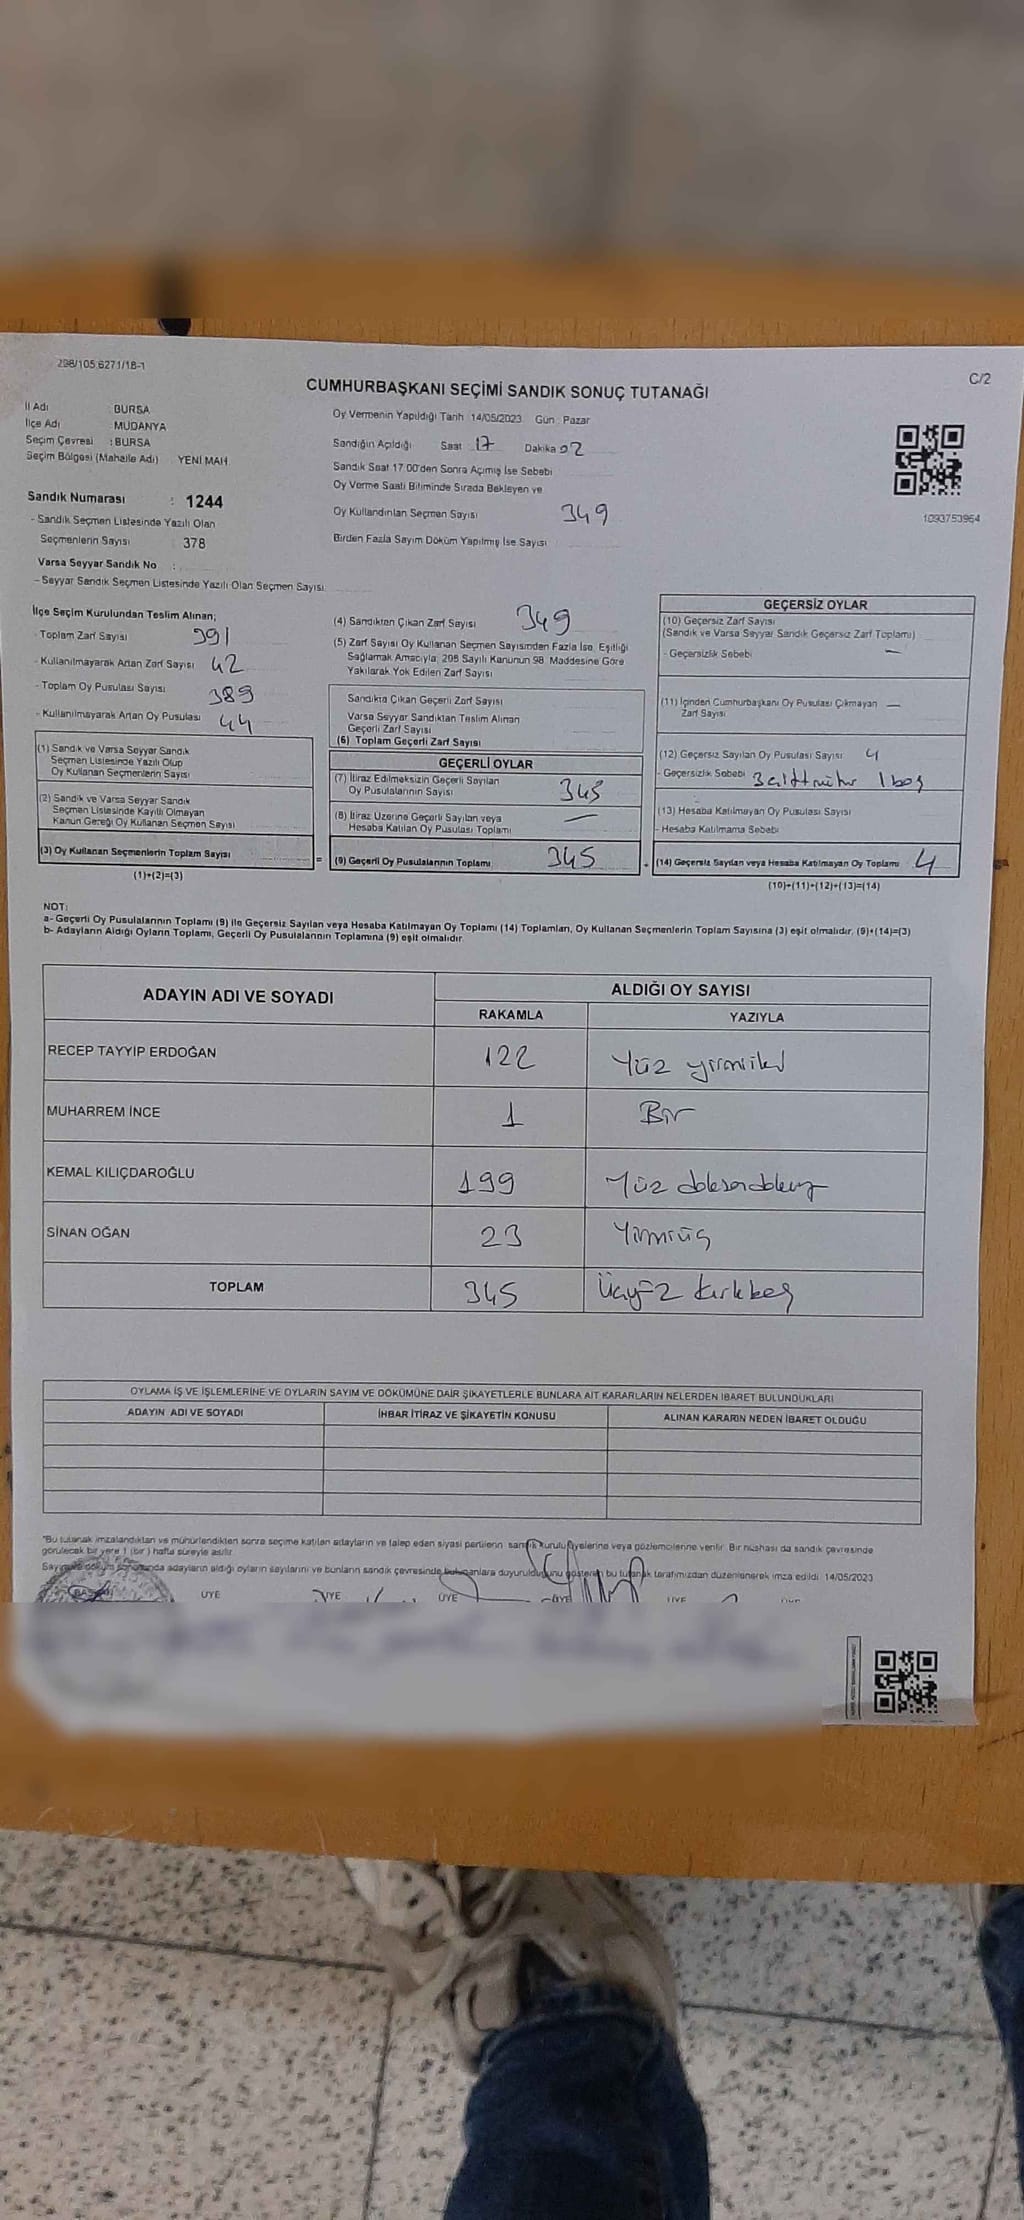 298/105.6271/18-1
C/2
CUMHURBAŞKANI SEÇİMİ SANDIK SONUÇ TUTANAĞI
İl Adı : BURSA
İlçe Adı MUDANYA
Seçim Çevresi : BURSA
Seçim Bölgesi (Mahalle Adı) YENİ MAH.
Sandık Numarası : 1244
- Sandık Seçmen Listesinde Yazılı Olan
Seçmenlerin Sayısı 378
Varsa Seyyar Sandık No :
- Seyyar Sandık Seçmen Listesinde Yazılı Olan Seçmen Sayısı
Oy Vermenin Yapıldığı Tarih 14/05/2023 Gün : Pazar
Sandığın Açıldığı Saat 17 Dakika 02
Sandık Saat 17.00'den Sonra Açımış İse Sebebi
Oy Verme Saati Bitiminde Sırada Bekleyen ve
Oy Kullandırılan Seçmen Sayısı 349
Birden Fazla Sayım Döküm Yapılmış İse Sayısı
1093753964
İlçe Seçim Kurulundan Teslim Alınan;
- Toplam Zarf Sayısı 391
- Kullanılmayarak Artan Zarf Sayısı 42
- Toplam Oy Pusulası Sayısı 389
- Kullanılmayarak Artan Oy Pusulası 44
(1) Sandık ve Varsa Seyyar Sandık
Seçmen Listesinde Yazılı Olup
Oy Kullanan Seçmenlerin Sayısı
(2) Sandık ve Varsa Seyyar Sandık
Seçmen Listesinde Kayıtlı Olmayan
Kanun Gereği Oy Kullanan Seçmen Sayısı
(3) Oy Kullanan Seçmenlerin Toplam Sayısı =
(1)+(2)=(3)
(4) Sandıktan Çıkan Zarf Sayısı 349
(5) Zarf Sayısı Oy Kullanan Seçmen Sayısından Fazla İse, Eşitliği
Sağlamak Amacıyla, 298 Sayılı Kanunun 98. Maddesine Göre
Yakılarak Yok Edilen Zarf Sayısı
Sandıkta Çıkan Geçerli Zarf Sayısı
Varsa Seyyar Sandıktan Teslim Alınan
Geçerli Zarf Sayısı
(6) Toplam Geçerli Zarf Sayısı
GEÇERLİ OYLAR
(7) İtiraz Edilmeksizin Geçerli Sayılan
Oy Pusulalarının Sayısı 345
(8) İtiraz Üzerine Geçerli Sayılan veya
Hesaba Katılan Oy Pusulası Toplamı —
(9) Geçerli Oy Pusulalarının Toplamı 345 +
GEÇERSİZ OYLAR
(10) Geçersiz Zarf Sayısı
(Sandık ve Varsa Seyyar Sandık Geçersiz Zarf Toplamı)
- Geçersizlik Sebebi —
(11) İçinden Cumhurbaşkanı Oy Pusulası Çıkmayan —
Zarf Sayısı
(12) Geçersiz Sayılan Oy Pusulası Sayısı 4
- Geçersizlik Sebebi 3 çift mühür 1 boş
(13) Hesaba Katılmayan Oy Pusulası Sayısı
- Hesaba Katılmama Sebebi
(14) Geçersiz Sayılan veya Hesaba Katılmayan Oy Toplamı 4
(10)+(11)+(12)+(13)=(14)
NOT:
a- Geçerli Oy Pusulalarının Toplamı (9) ile Geçersiz Sayılan veya Hesaba Katılmayan Oy Toplamı (14) Toplamları, Oy Kullanan Seçmenlerin Toplam Sayısına (3) eşit olmalıdır. (9)+(14)=(3)
b- Adayların Aldığı Oyların Toplamı, Geçerli Oy Pusulalarının Toplamına (9) eşit olmalıdır.
ADAYIN ADI VE SOYADI ALDIĞI OY SAYISI
RAKAMLA YAZIYLA
RECEP TAYYİP ERDOĞAN 122 Yüz yirmiiki
MUHARREM İNCE 1 Bir
KEMAL KILIÇDAROĞLU 199 Yüz doksandokuz
SİNAN OĞAN 23 Yirmiüç
TOPLAM 345 Üçyüz kırkbeş
OYLAMA İŞ VE İŞLEMLERİNE VE OYLARIN SAYIM VE DÖKÜMÜNE DAİR ŞİKAYETLERLE BUNLARA AİT KARARLARIN NELERDEN İBARET BULUNDUKLARI
ADAYIN ADI VE SOYADI İHBAR İTİRAZ VE ŞİKAYETİN KONUSU ALINAN KARARIN NEDEN İBARET OLDUĞU
"Bu tutanak imzalandıktan ve mühürlendikten sonra seçime katılan adayların ve talep eden siyasi partilerin sandık kurulu üyelerine veya gözlemcilerine verilir. Bir nüshası da sandık çevresinde
görülecek bir yere 1 (bir) hafta süreyle asılır.
Sayım ve döküm sonucunda adayların aldığı oyların sayılarını ve bunların sandık çevresinde bulunanlara duyurulduğunu gösteren bu tutanak tarafımızdan düzenlenerek imza edildi. 14/05/2023
BAŞKAN ÜYE ÜYE ÜYE ÜYE ÜYE